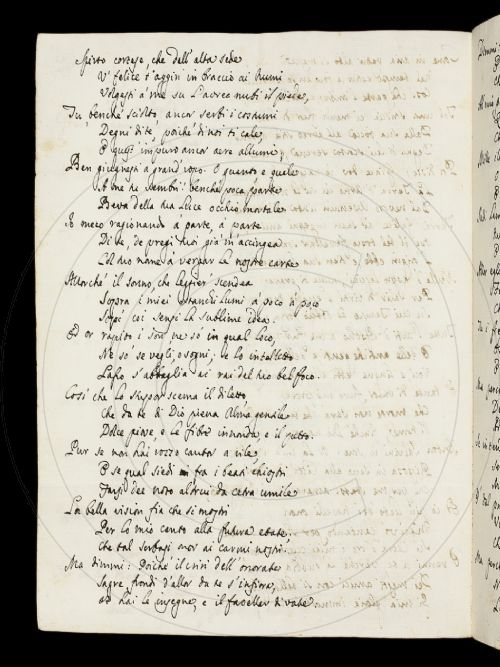 Spirto cortese, che dell'alta sede
V' felice t'aggiri in braccio ai Numi
Volgesti a me su l'aurea nube il piede,
Tu, benchè sciolto, ancor serbi i costumi
Degni di te, poichè di noi ti cale,
E quest' impuro ancor aere allumi,
Ben giugnesti a grand'uopo. O quanto e quale
A me ne sembri! benchè poca parte
Beva della tua luce occhio mortale
Io meco ragionando a parte, a parte
Di te, de' pregi tuoi già m'accingea
Col duo mane a vergar le nostre carte
Allorchè il sonno, che leggier' scendea
Sopra i miei stanchi lumi a poco a poco
Sopì coi sensi la sublime idea.
Ed or rapito i' son ne sò in qual loco,
Ne so se vegli, o sogni, e lo intelletto
Lasso s'abbaglia ai rai del tuo bel foco.
Così che lo stupor scema il diletto,
che da te di Dio piena Alma gentile
Dolce piove, e le fibre innonda, e il petto.
Pur se non hai rozzo cantor a vile
E se qual siedi in fra i beati chiostri
Farsi dee noto altrui da cetra umile
La bella vision fia che si mostri
Per lo mio canto alla futura etate,
che tal serbasi onor ai carmi nostri.
Ma dimmi: Poichè il crin dell' onorate
Sagre frondi d'allor da te s'infiora,
ed hai le insegne, e il favellar di vate